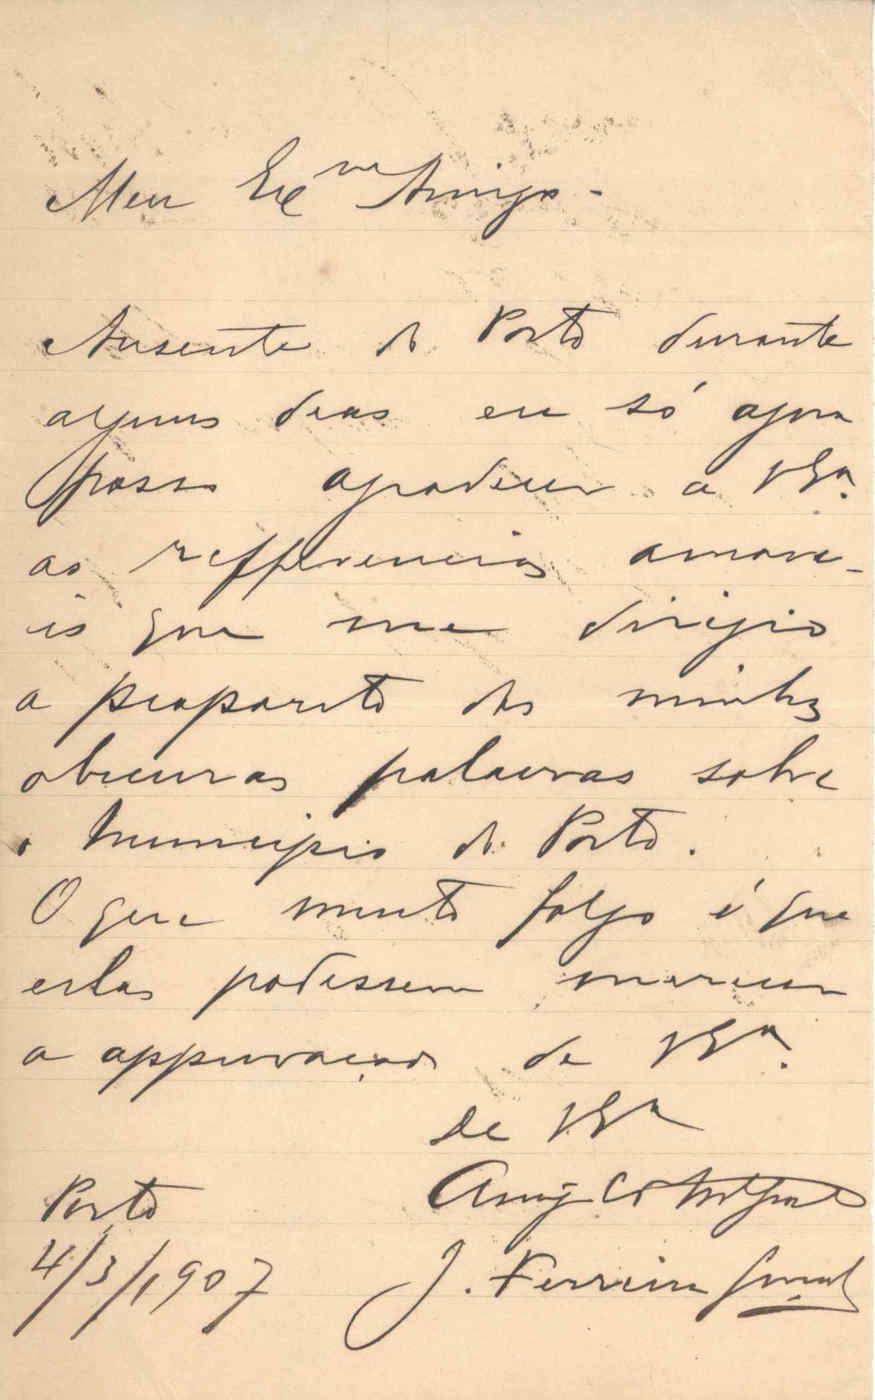 Meu Exmo Amigo -
Ausente do Porto durante
alguns dias eu só agora
posso agradecer a V Exa.
as refferencias amave-
is que me dirigio
a proposito das minhas
obscuras palavras sobre
o Municipio do Porto.
O que muito folgo é que
ellas podessem merecer
a approvação de V Exa.
De V Exa
Porto
Amigo
4/3/1907
J. Ferreira